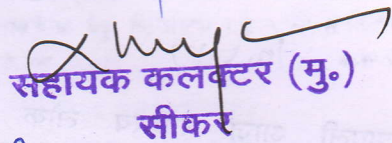 सहायक कलक्टर (मु०)
सीकर